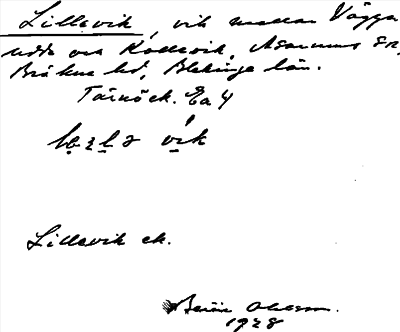 Lillevik, vik mellan Vägga
udde och Kollevik, Asarums sn,
Bräkne hd, Blekinge län.
Tärnö ek. Ea 4
Lillevik ek.
Ohlsson.
1928